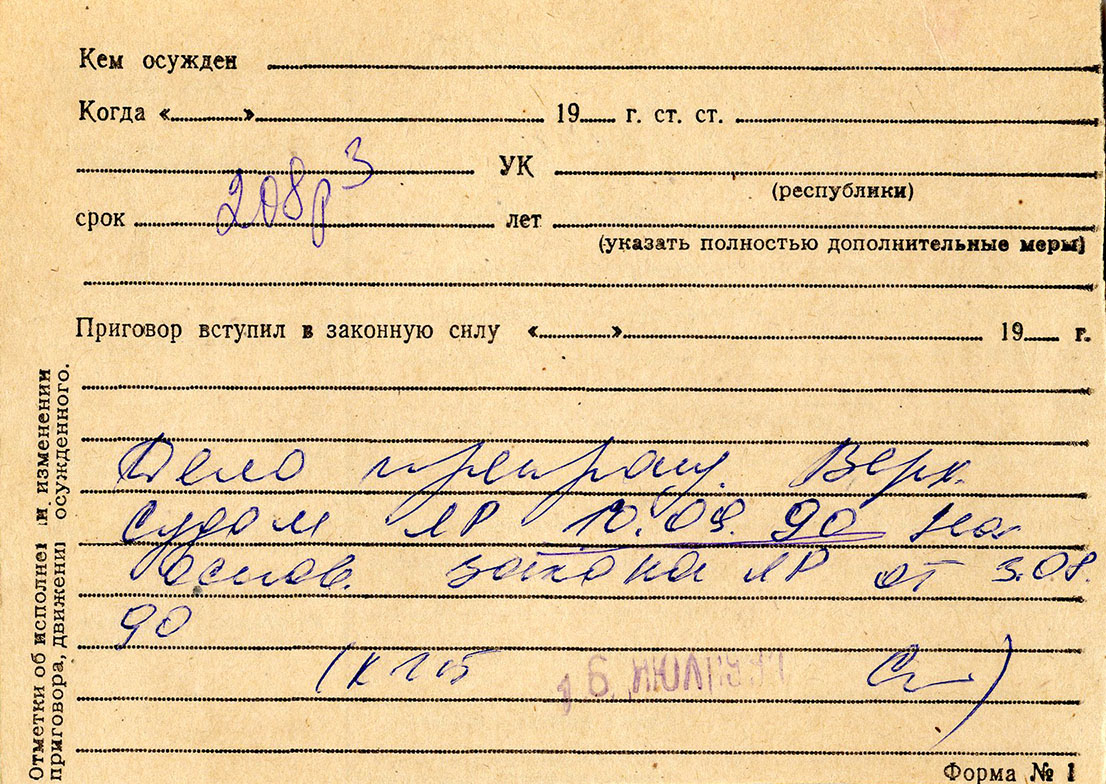 Кем осужден
Когда « » 19 г. ст. ст.
УК
(республики)
208р 3
срок лет
(указать полностью дополнительные меры)
Приговор вступил в законную силу « » 19 г.
Отметки об исполнен и изменении
приговора, движени осужденного.
Дело прекращ. Верх.
судом ЛР 10.09.90 на
основ. закона ЛР от 3.08.
90
(КГБ 16 ИЮЛ )
Форма № 1